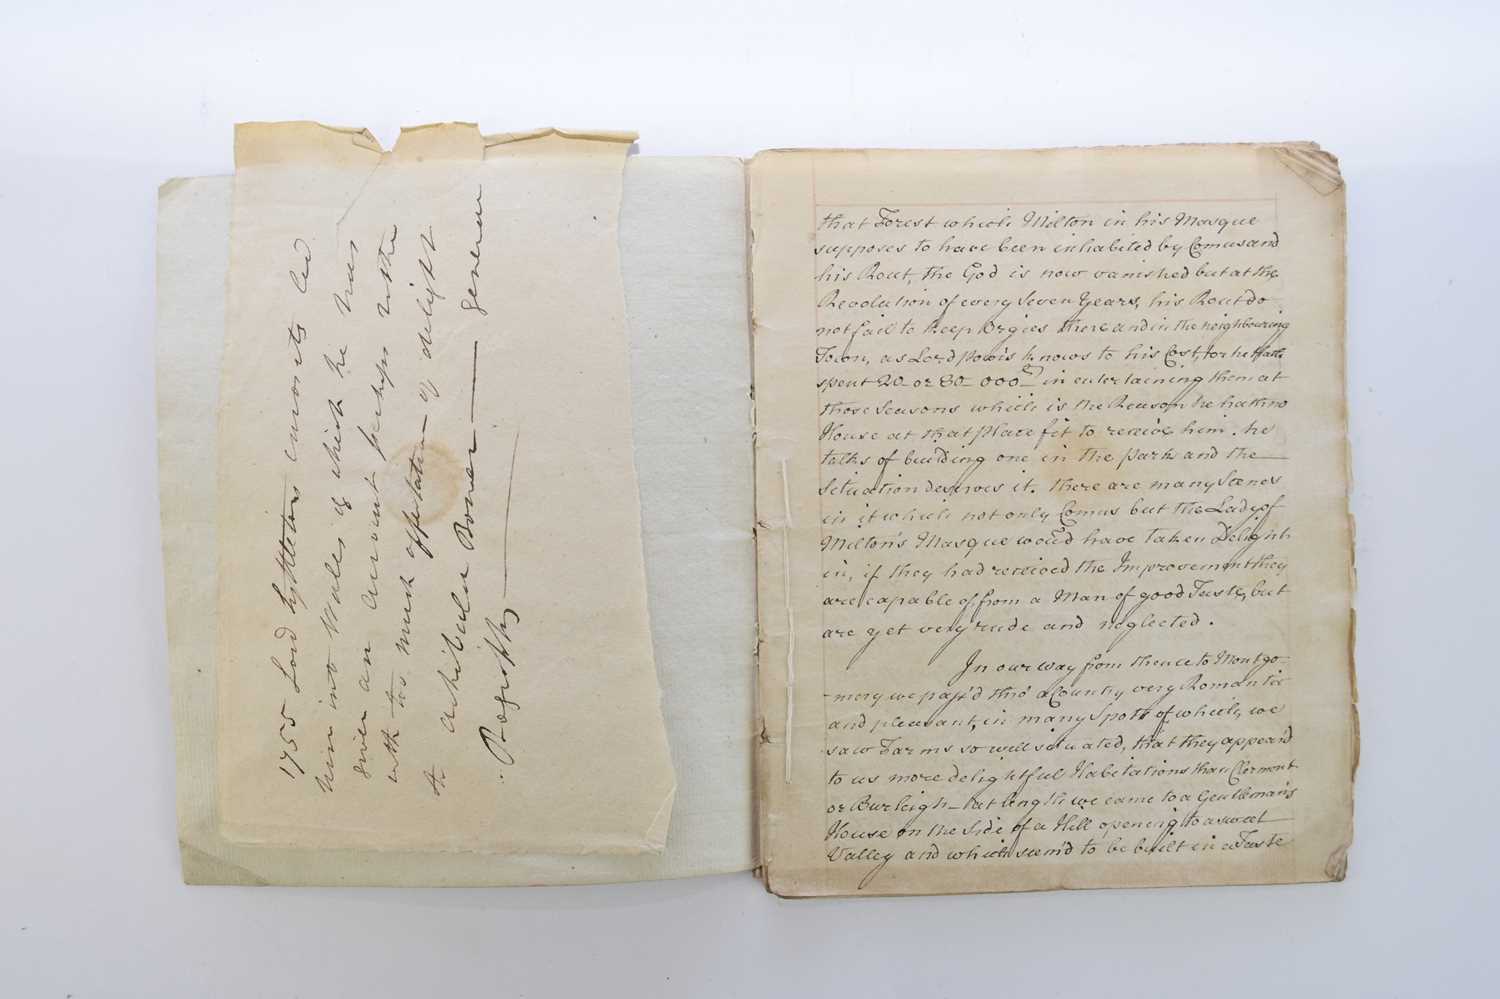 1755 Lord Lyttletons
into Wales of which he has
given an account perhaps rather
with too much affectation of delight
to
Prosopthy
that Forest which Milton in his Masque
supposes to have been inhabited by Comus and
his Rout, the God is now vanished but at the
Revolution of every Seven Years, his Rout do
not fail to keep Orgies there and in the neighbouring
Town, as Lord Powis knows to his Cost, for he hath
spent 20 or 30 000 in entertaining them at
those Seasons which is the Reason he hath no
House at that place fit to receive him. he
talks of building one in the park and the
Situation deserves it. there are many Scenes
in it which not only Comus but the Lady of
Milton's Masque wou'd have taken Delight
in, if they had received the Improvement they
are capable of, from a Man of good Taste, but
are yet very rude and neglected.
In our way from thence to Montgo-
-mery we pass'd thro' a Country very Romantic
and pleasant, in many Spots of which, we
saw Farms so well situated, that they appear'd
to us more delightful Habitations than Clermont
or Burleigh - at length we came to a Gentleman's
House on the Side of a Hill opening to a sweet
Valley and which seem'd to be built in a Taste